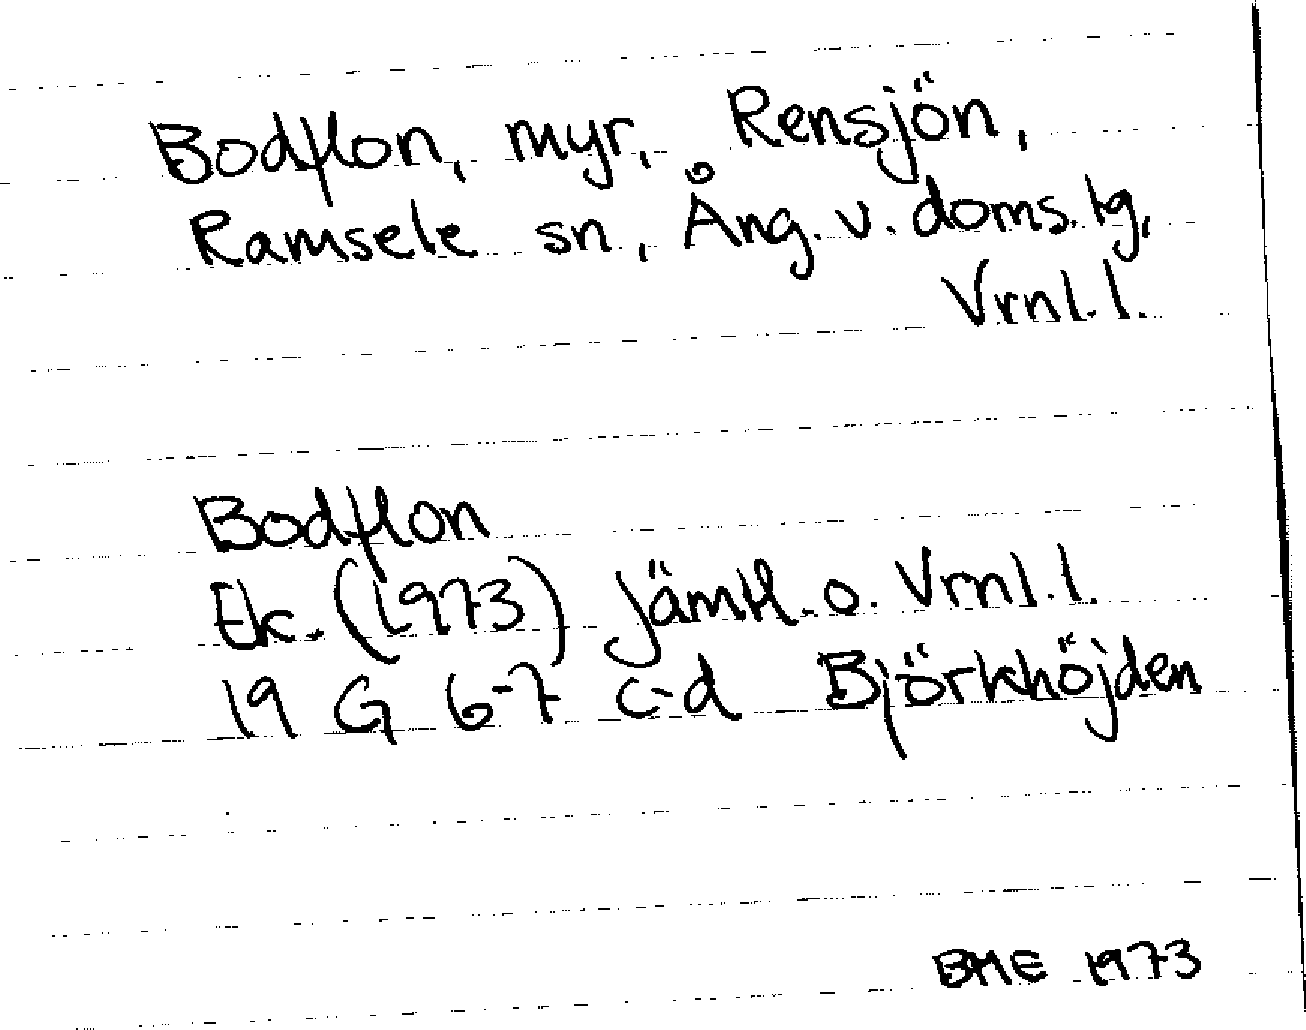 Bodflon, myr, Rensjön,
Ramsele sn, Ång. v. doms. tg,
Vrnl. l.
Bodflon
Ek. (1973) Jämtl. o. Vrnl. l.
19 G 6-7 c-d Björkhöjden
BME 1973